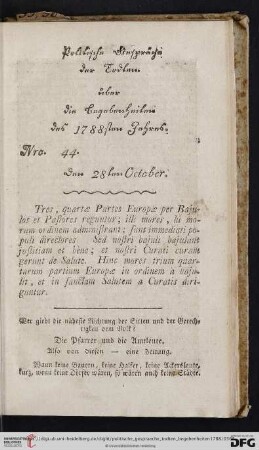 Politische Gespräche
der Todten
über
die Begebenheiten
des 1788sten Jahres.
Nro. 44.
Den 28sten October.
Tres, quartæ Partes Europæ per Baju-
los et Pastores reguntur; illi mores, hi mo-
rum ordinem administrant; sunt immediati po-
puli directores Sed nostri bajuli bajulant
justitiam et bene; et nostri Curati curam
gerunt de Salute. Hinc mores trium quar-
tarum partium Europæ in ordinem à baju-
lis, et in sanctam Salutem a Curatis diri-
guntur.
Wer giebt die näheste Richtung der Sitten und der Gerech-
tigkeit dem Volk?
Die Pfarrer und die Amtleute.
Also von diesen — eine Zeitung.
Wann keine Bauern, keine Häuser, keine Ackersleute,
kurz, wenn keine Dörfer wären, so wären auch keine Städte.
digi.ub.uni-heidelberg.de/diglit/politische_gespraeche_todten_begebenheiten1788
DFG